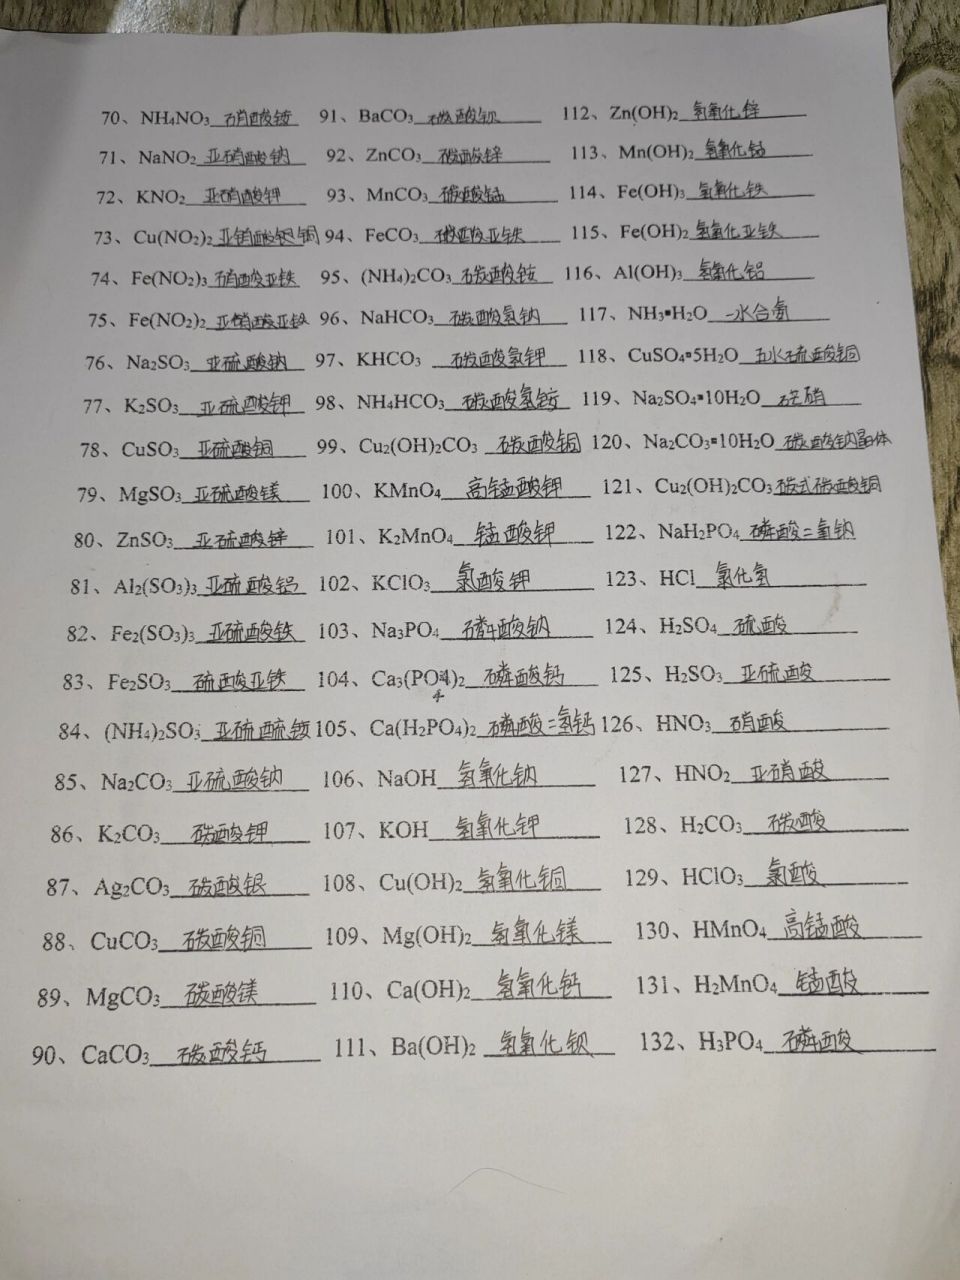 70、NH₄NO₃ 硝酸铵 91、BaCO₃ 碳酸钡 112、Zn(OH)₂ 氢氧化锌
71、NaNO₂ 亚硝酸钠 92、ZnCO₃ 碳酸锌 113、Mn(OH)₂ 氢氧化锰
72、KNO₂ 亚硝酸钾 93、MnCO₃ 碳酸锰 114、Fe(OH)₃ 氢氧化铁
73、Cu(NO₂)₂ 亚硝酸铜 94、FeCO₃ 碳酸亚铁 115、Fe(OH)₂ 氢氧化亚铁
74、Fe(NO₂)₃ 硝酸亚铁 95、(NH₄)₂CO₃ 碳酸铵 116、Al(OH)₃ 氢氧化铝
75、Fe(NO₂)₂ 亚硝酸亚铁 96、NaHCO₃ 碳酸氢钠 117、NH₃•H₂O 一水合氨
76、Na₂SO₃ 亚硫酸钠 97、KHCO₃ 碳酸氢钾 118、CuSO₄•5H₂O 五水硫酸铜
77、K₂SO₃ 亚硫酸钾 98、NH₄HCO₃ 碳酸氢铵 119、Na₂SO₄•10H₂O 芒硝
78、CuSO₃ 亚硫酸铜 99、Cu₂(OH)₂CO₃ 碳酸铜 120、Na₂CO₃•10H₂O 碳酸钠晶体
79、MgSO₃ 亚硫酸镁 100、KMnO₄ 高锰酸钾 121、Cu₂(OH)₂CO₃ 碱式碳酸铜
80、ZnSO₃ 亚硫酸锌 101、K₂MnO₄ 锰酸钾 122、NaH₂PO₄ 磷酸二氢钠
81、Al₂(SO₃)₃ 亚硫酸铝 102、KClO₃ 氯酸钾 123、HCl 氯化氢
82、Fe₂(SO₃)₃ 亚硫酸铁 103、Na₃PO₄ 磷酸钠 124、H₂SO₄ 硫酸
83、Fe₂SO₃ 硫酸亚铁 104、Ca₃(PO₄)₂ 磷酸钙 125、H₂SO₃ 亚硫酸
84、(NH₄)₂SO₃ 亚硫酸铵 105、Ca(H₂PO₄)₂ 磷酸二氢钙 126、HNO₃ 硝酸
85、Na₂CO₃ 亚硫酸钠 106、NaOH 氢氧化钠 127、HNO₂ 亚硝酸
86、K₂CO₃ 碳酸钾 107、KOH 氢氧化钾 128、H₂CO₃ 碳酸
87、Ag₂CO₃ 碳酸银 108、Cu(OH)₂ 氢氧化铜 129、HClO₃ 氯酸
88、CuCO₃ 碳酸铜 109、Mg(OH)₂ 氢氧化镁 130、HMnO₄ 高锰酸
89、MgCO₃ 碳酸镁 110、Ca(OH)₂ 氢氧化钙 131、H₂MnO₄ 锰酸
90、CaCO₃ 碳酸钙 111、Ba(OH)₂ 氢氧化钡 132、H₃PO₄ 磷酸